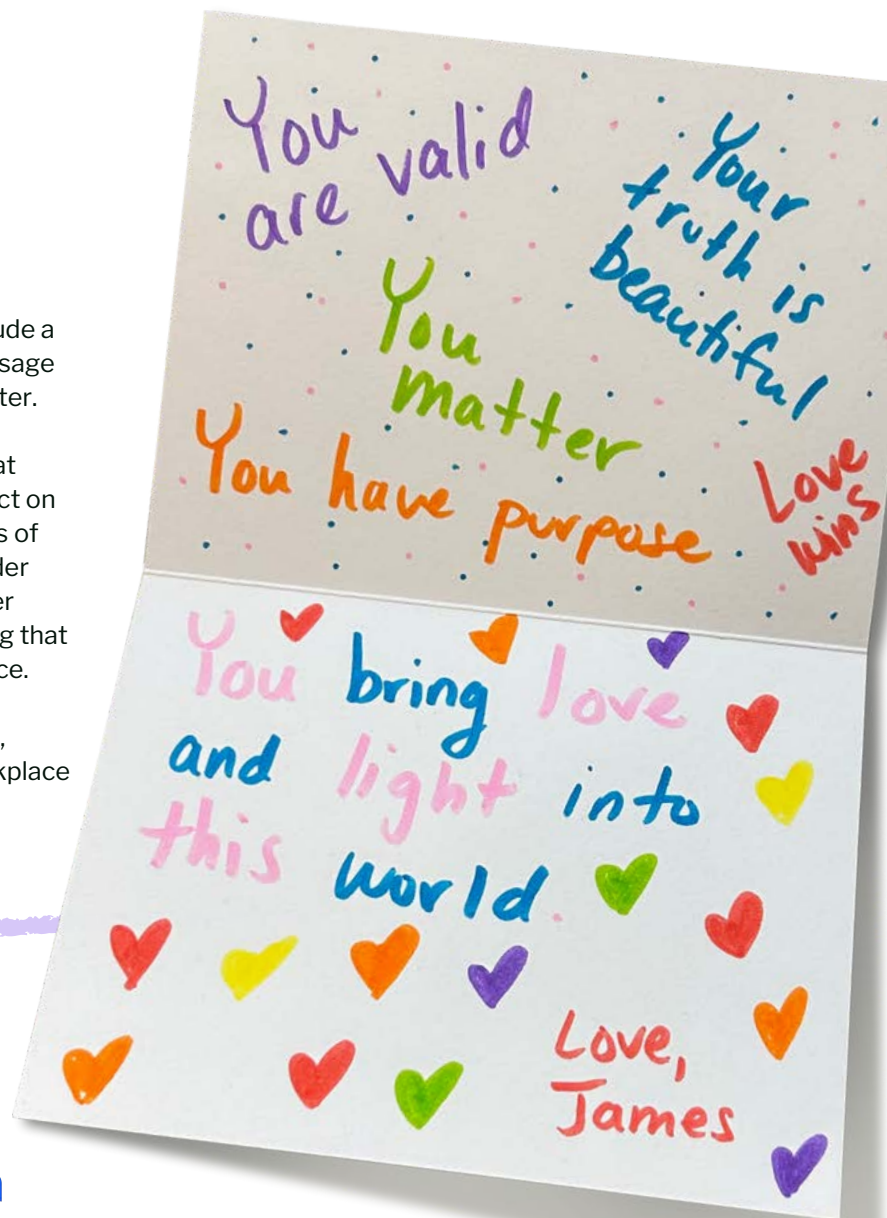 ude a
sage
ter.
at
ct on
s of
der
er
g that
ce.
,
kplace
You
are valid
Your
truth is
beautiful
You
matter
You have purpose
Love
wins
You bring love
and light into
this world.
Love,
James